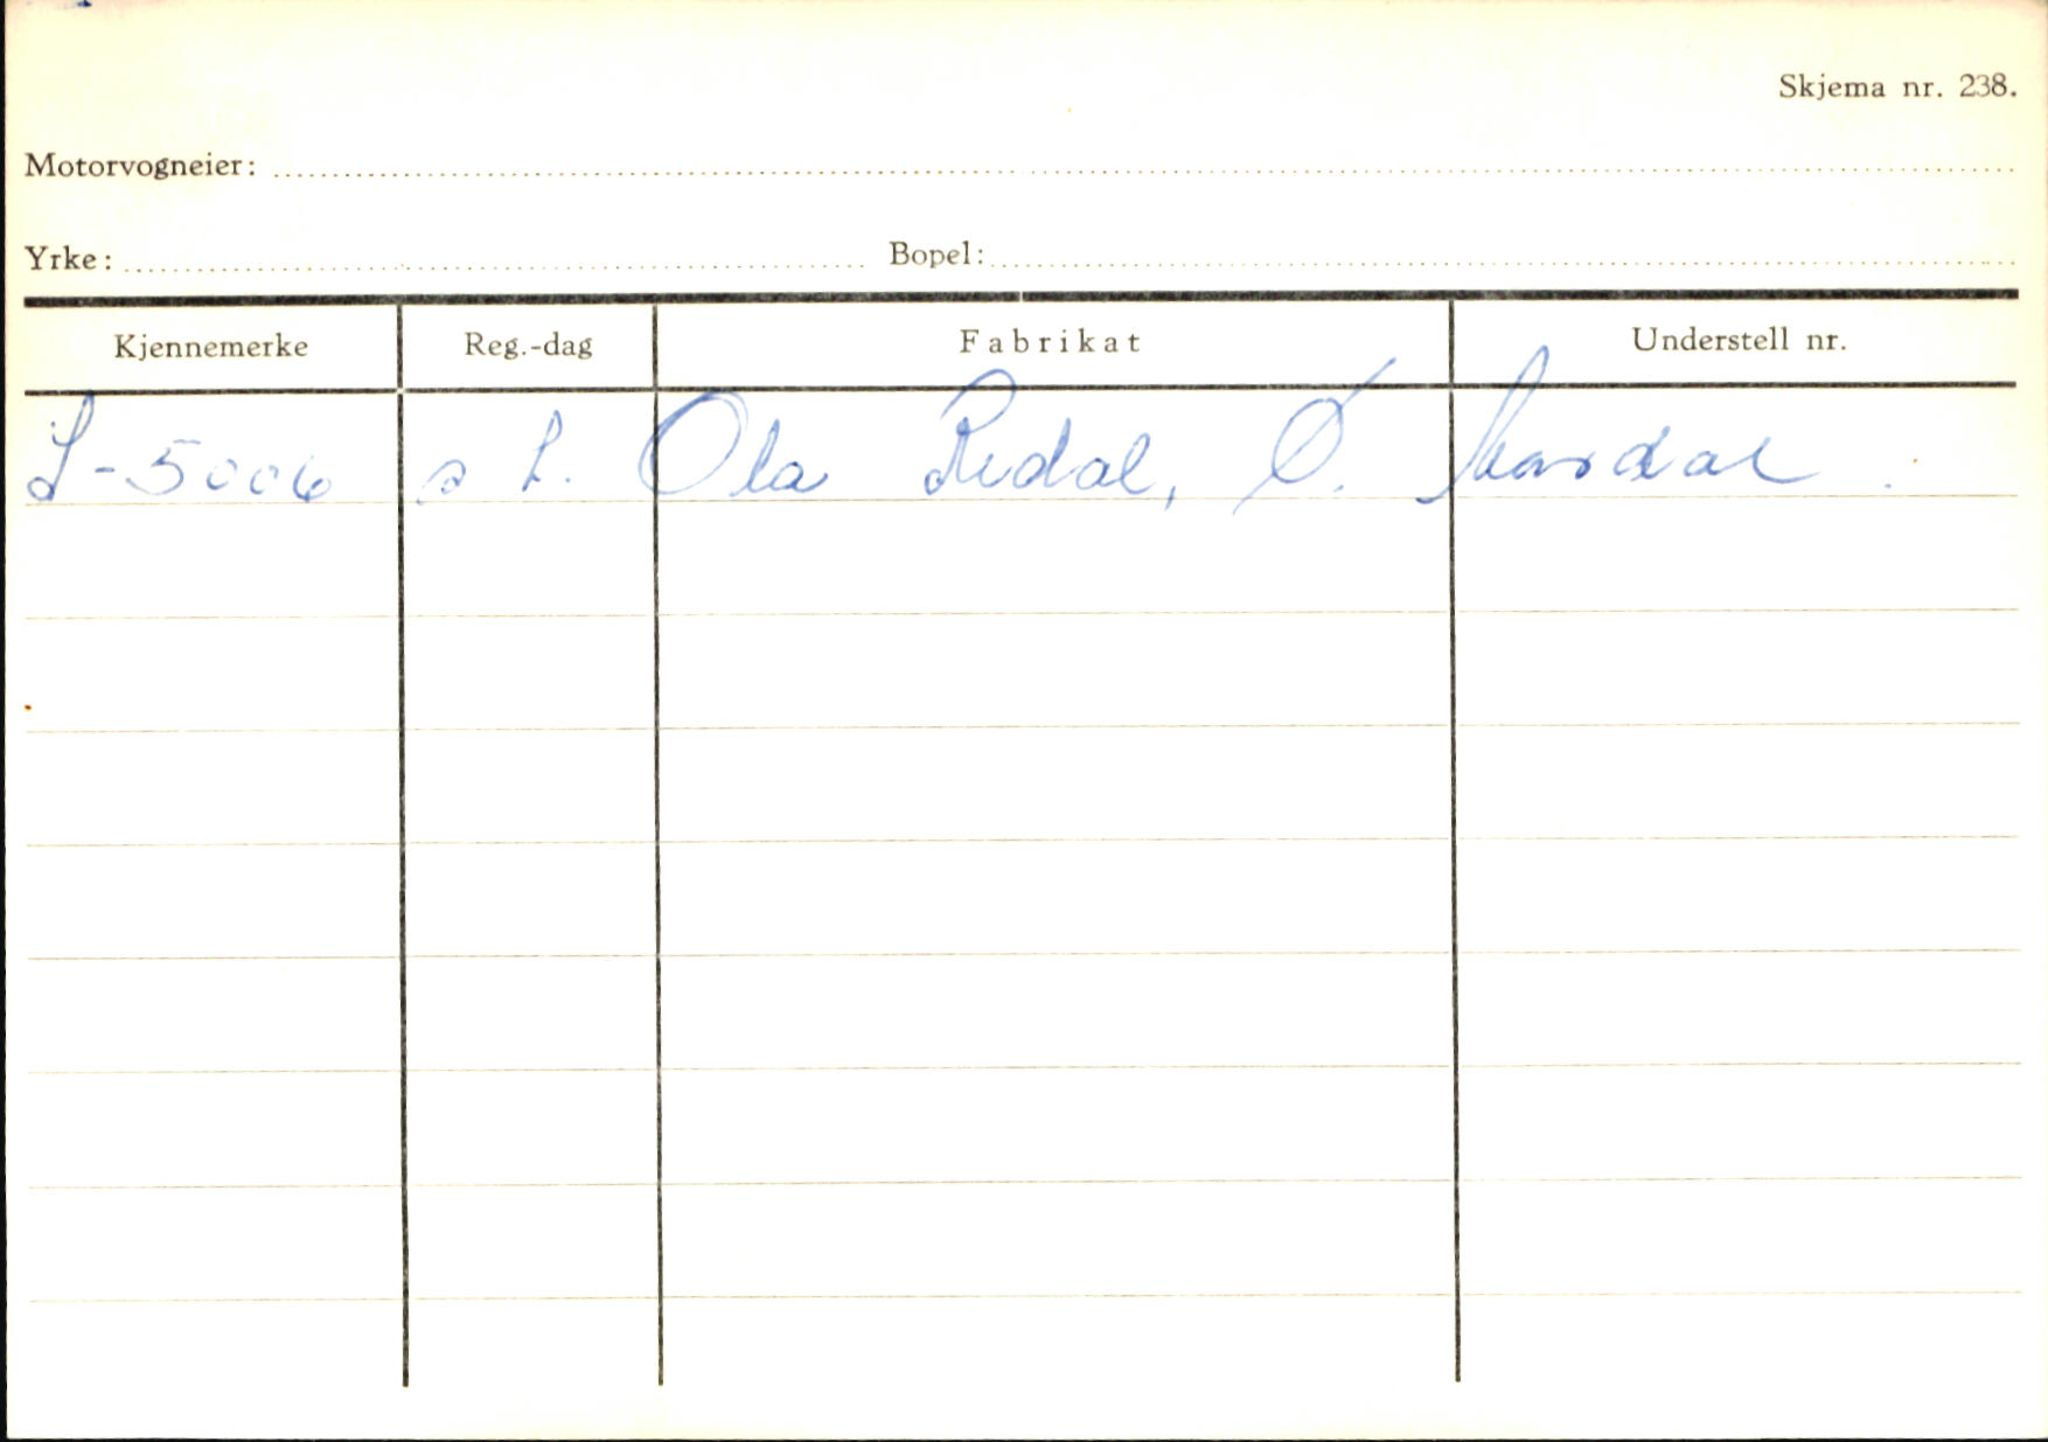 Skjema nr. 238.
Motorvogneier:
Yrke: Bopel:
Kjennemerke Reg.-dag Fabrikat Understell nr.
S-5006 s L. Ola Redal, Ø. Årdal.